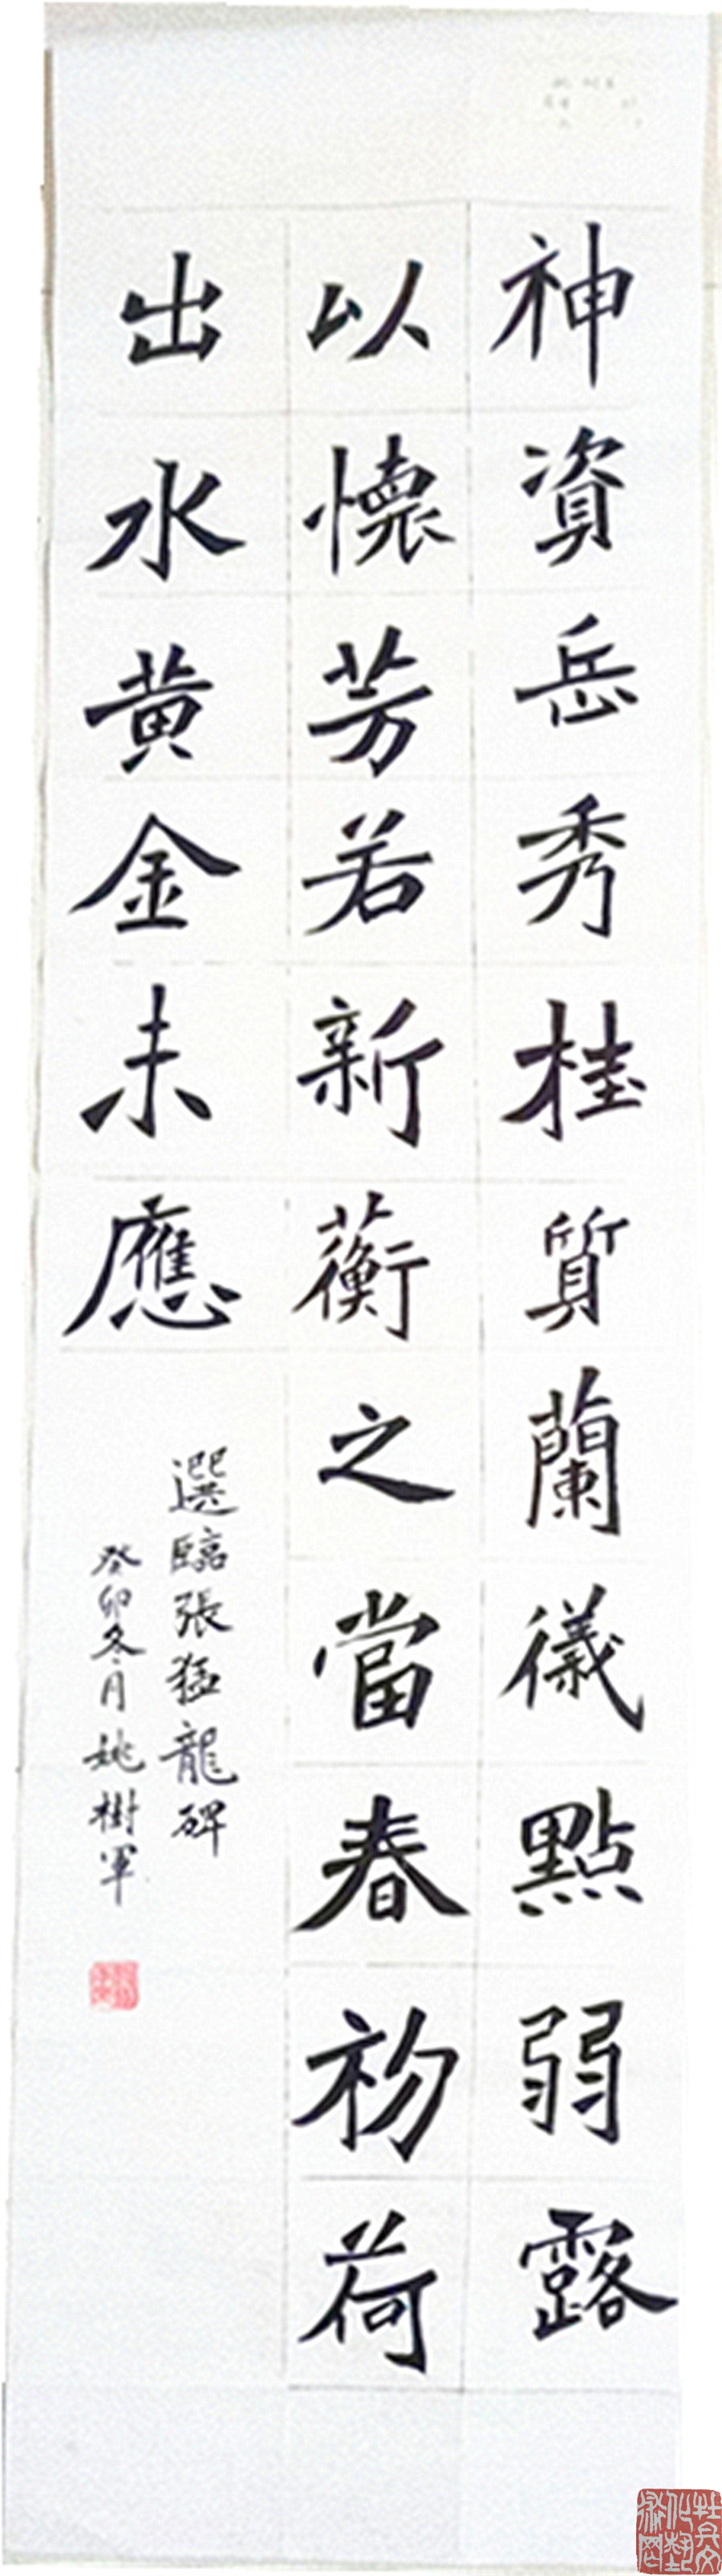 神資岳秀桂質蘭儀點弱露
以懷芳若新蘅之當春初荷
出水黃金未應
選臨張猛龍碑
癸卯冬月姚樹軍